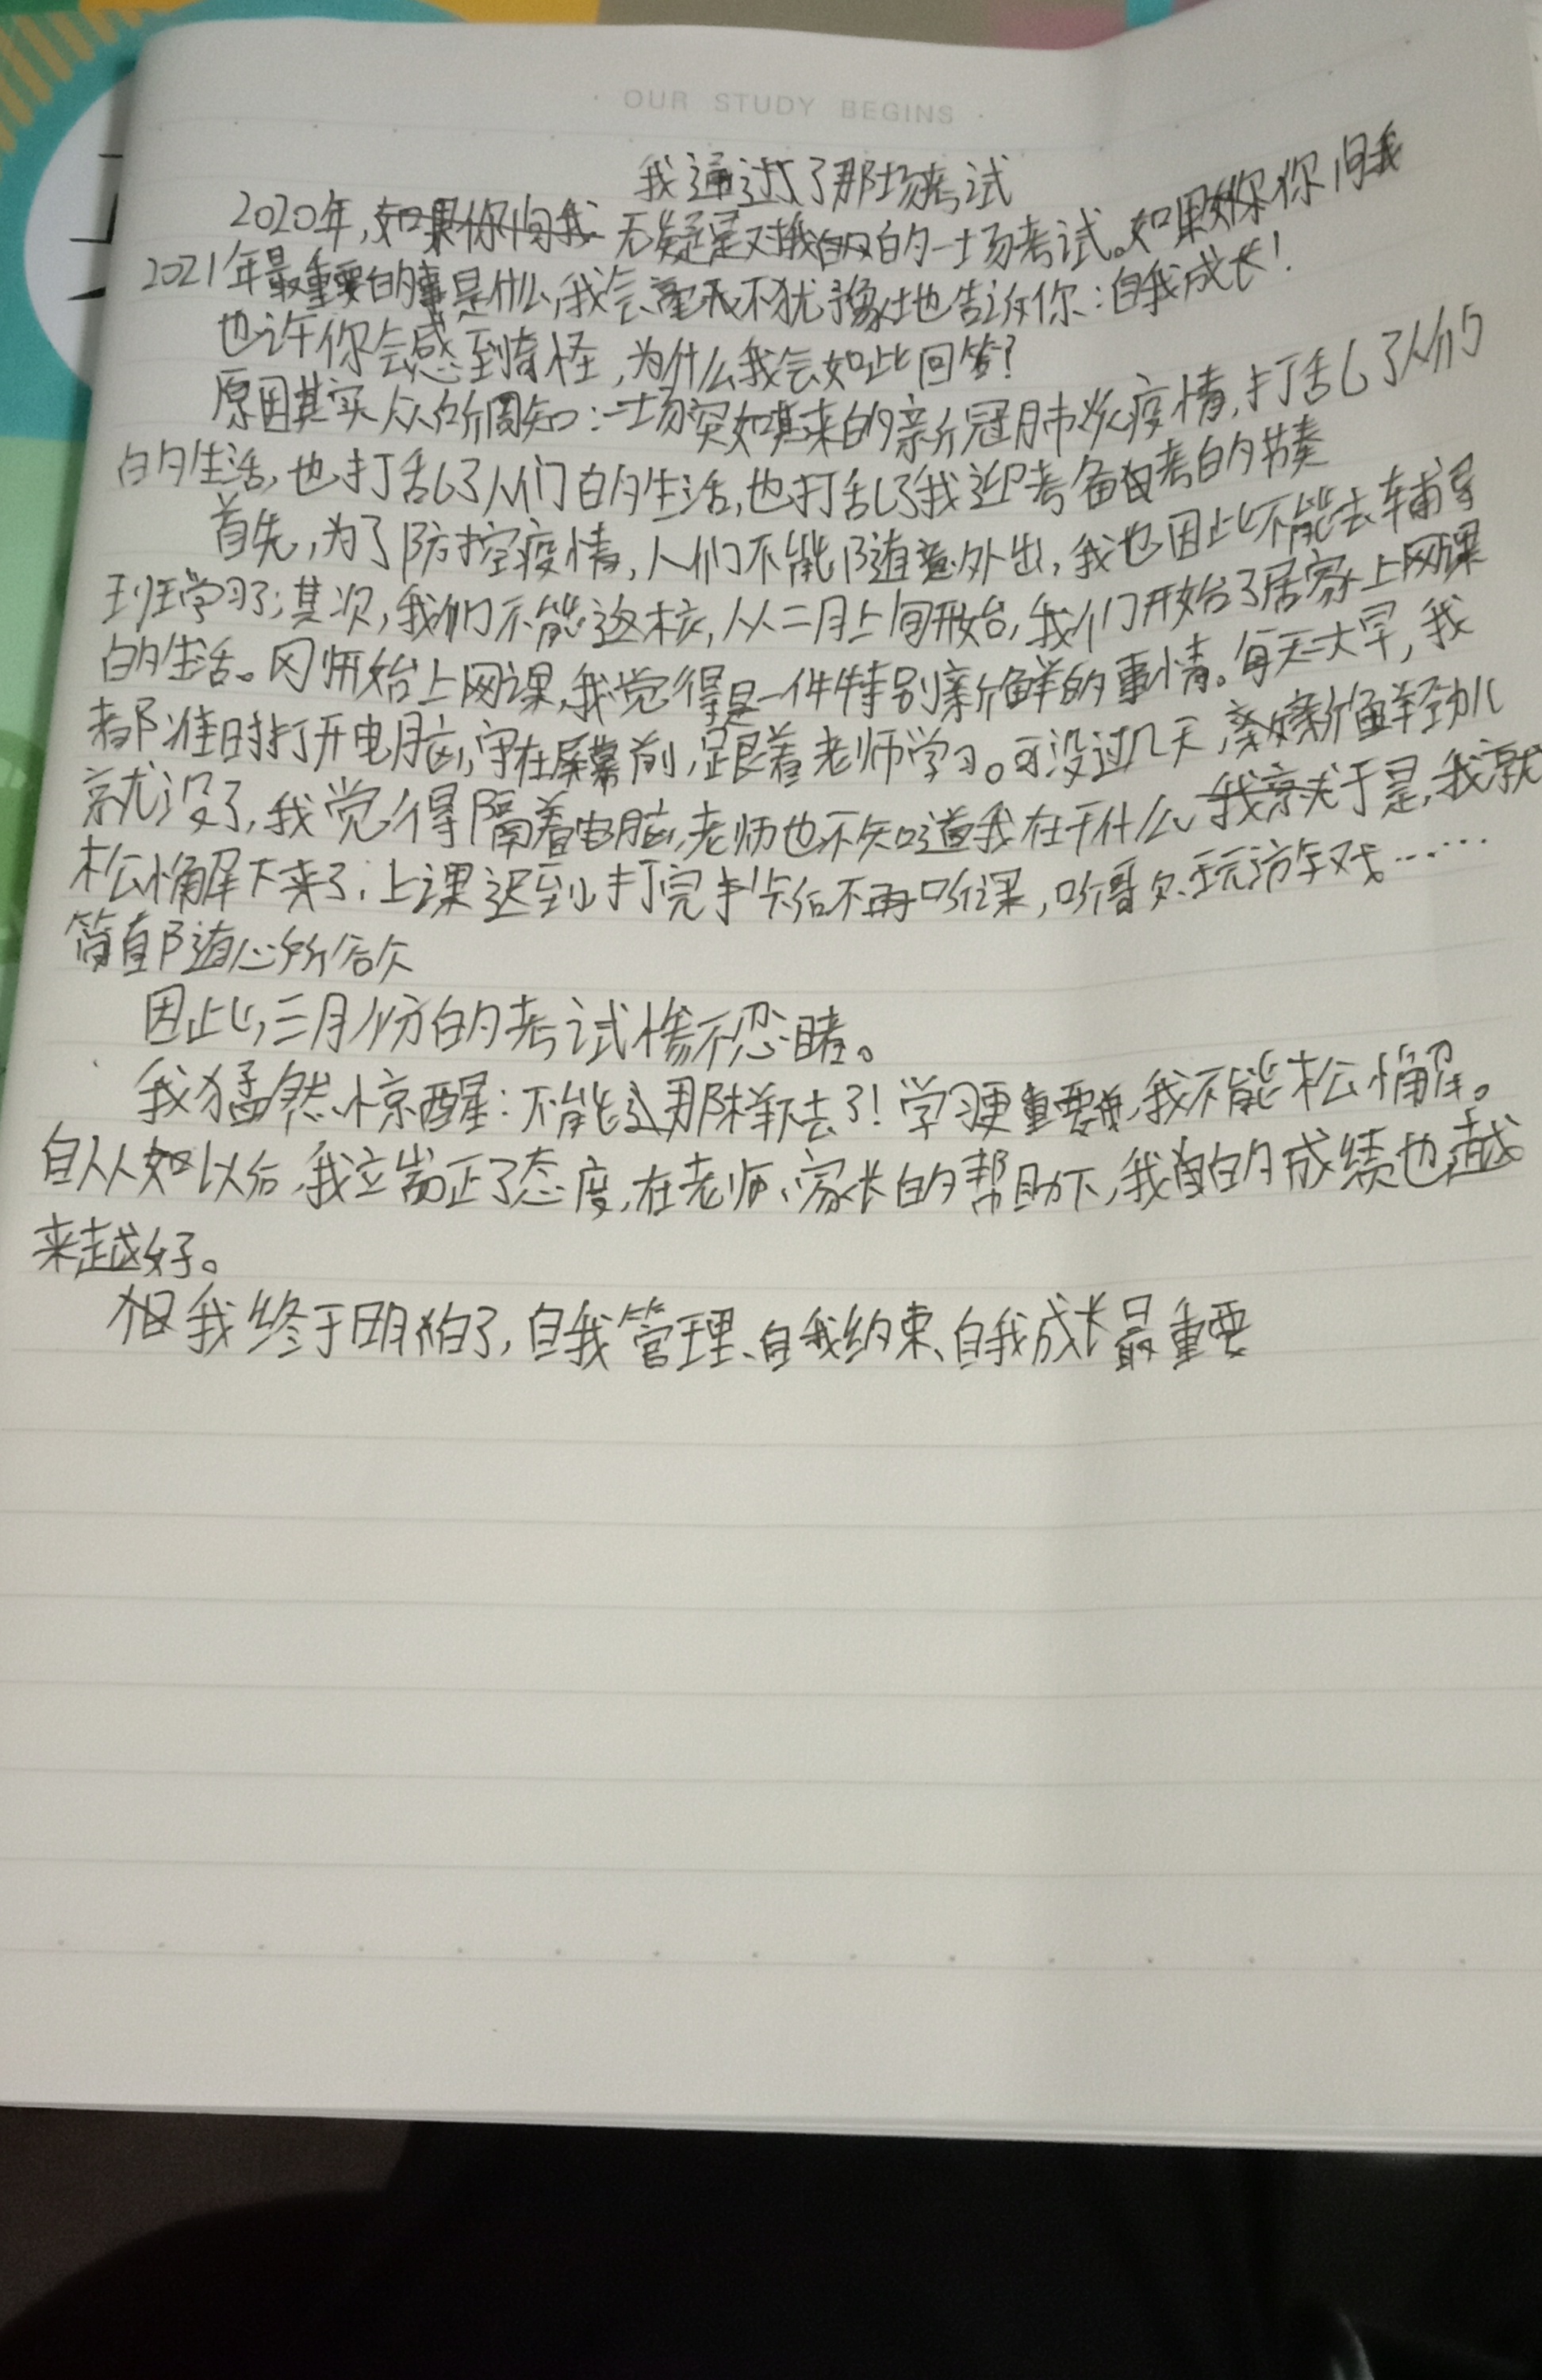 · OUR STUDY BEGINS ·
我通过了那场考试
2020年,无疑是对我的一场考试。如果你问我
2021年最重要的事是什么,我会毫不犹豫地告诉你:自我成长!
也许你会感到奇怪,为什么我会如此回答?
原因其实众所周知:一场突如其来的新冠肺炎疫情,打乱了人们
的生活,也打乱了人们的生活,也打乱了我迎考备考的节奏
首先,为了防控疫情,人们不能随意外出,我也因此不能去辅导
班学习了;其次,我们不能返校,从二月上旬开始,我们开始了居家上网课
的生活。刚开始上网课,我觉得是一件特别新鲜的事情。每天一大早,我
都准时打开电脑,守在屏幕前,跟着老师学习。可没过几天,新鲜劲儿
就没了,我觉得隔着电脑,老师也不知道我在干什么、于是,我就
松懈下来了,上课迟到、打完卡后不再听课,听歌、玩游戏……
简直随心所欲
因此,三月份的考试惨不忍睹。
我猛然惊醒:不能那样下去了!学习更重要,我不能松懈。
自从以后,我端正了态度,在老师、家长的帮助下,我的成绩也越
来越好。
我终于明白了,自我管理、自我约束、自我成长最重要